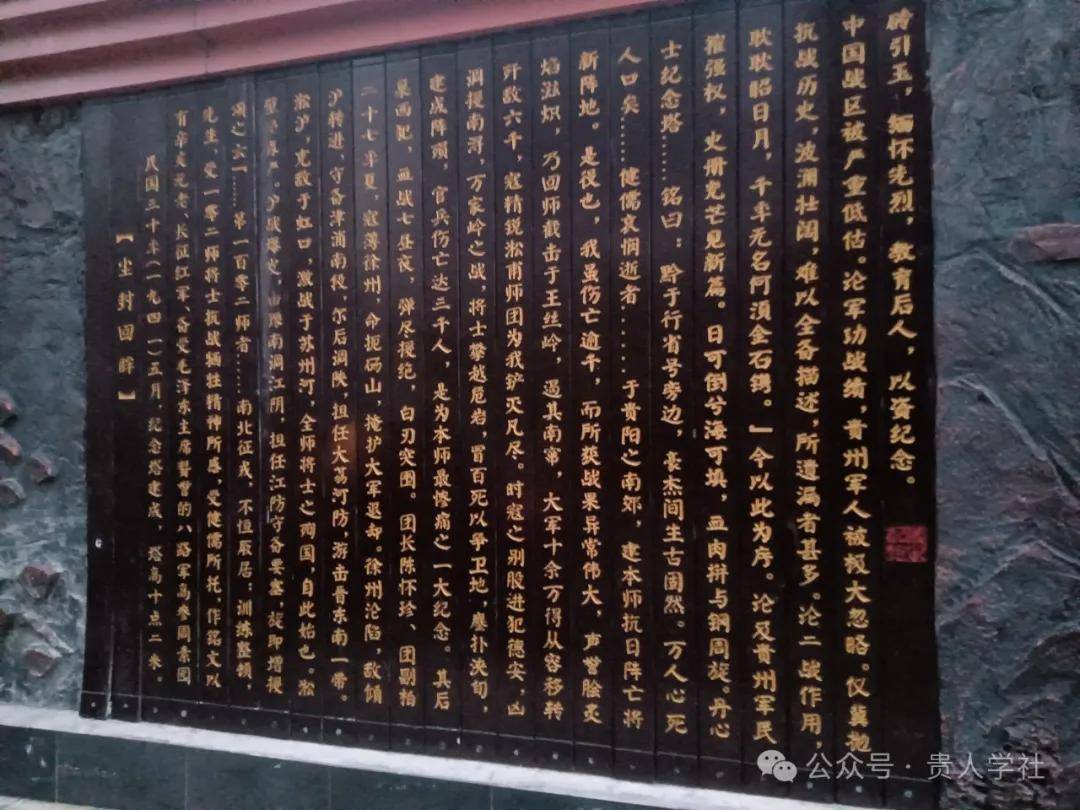 【尘封回眸】
民国三十年(一九四一)五月,纪念塔建成,塔高十点二米。
有辛亥元老、长征红军、备受毛泽东主席赞誉的八路军高参周素园
先生,受一零二师将士抗战牺牲精神所感,受健儒所托,作铭文以
颂之:“……第一百零二师者……南北征戍,不恒厥居,训练整顿,
壁垒森严。沪战爆发,由豫南调江阴,担任江防守备要塞,旋即增援
淞沪,克敌于虹口,激战于苏州河,全师将士之殉国,自此始也。淞
沪转进,守备津浦南段,尔后调陕,担任大荔河防,游击晋东南一带。
二十七年夏,寇薄徐州,命扼砀山,掩护大军退却。徐州沦陷,敌倾
巢西犯,血战七昼夜,弹尽援绝,白刃突围。团长陈怀珍、团副柏
建成阵殒,官兵伤亡达三千人,是为本师最惨痛之一大纪念。其后
调援南浔,万家岭之战,将士攀越危岩,冒百死以争卫地,鏖扑浃旬,
歼敌六千,寇精锐淞甫师团为我铲灭几尽。时寇之别股进犯德安,凶
焰滋炽,乃回师截击于王丝岭,遏其南窜,大军十余万得从容移转
新阵地。是役也,我虽伤亡逾千,而所获战果异常伟大,声誉脍炙
人口矣……健儒哀悯逝者……于贵阳之南郊,建本师抗日阵亡将
士纪念塔……铭曰:黔于行省号旁边,豪杰间生古国然。万人心死
摧强权,史册光芒见新篇。日可倒兮海可填,血肉拼与钢周旋。丹心
耿耿昭日月,千年无名何须金石镌。”今以此为序。论及贵州军民
抗战历史,波澜壮阔,难以全备描述,所遗漏者甚多。论二战作用,
中国战区被严重低估。论军功战绩,贵州军人被极大忽略。仅冀抛
砖引玉,缅怀先烈,教育后人,以资纪念。
公众号·贵人学社